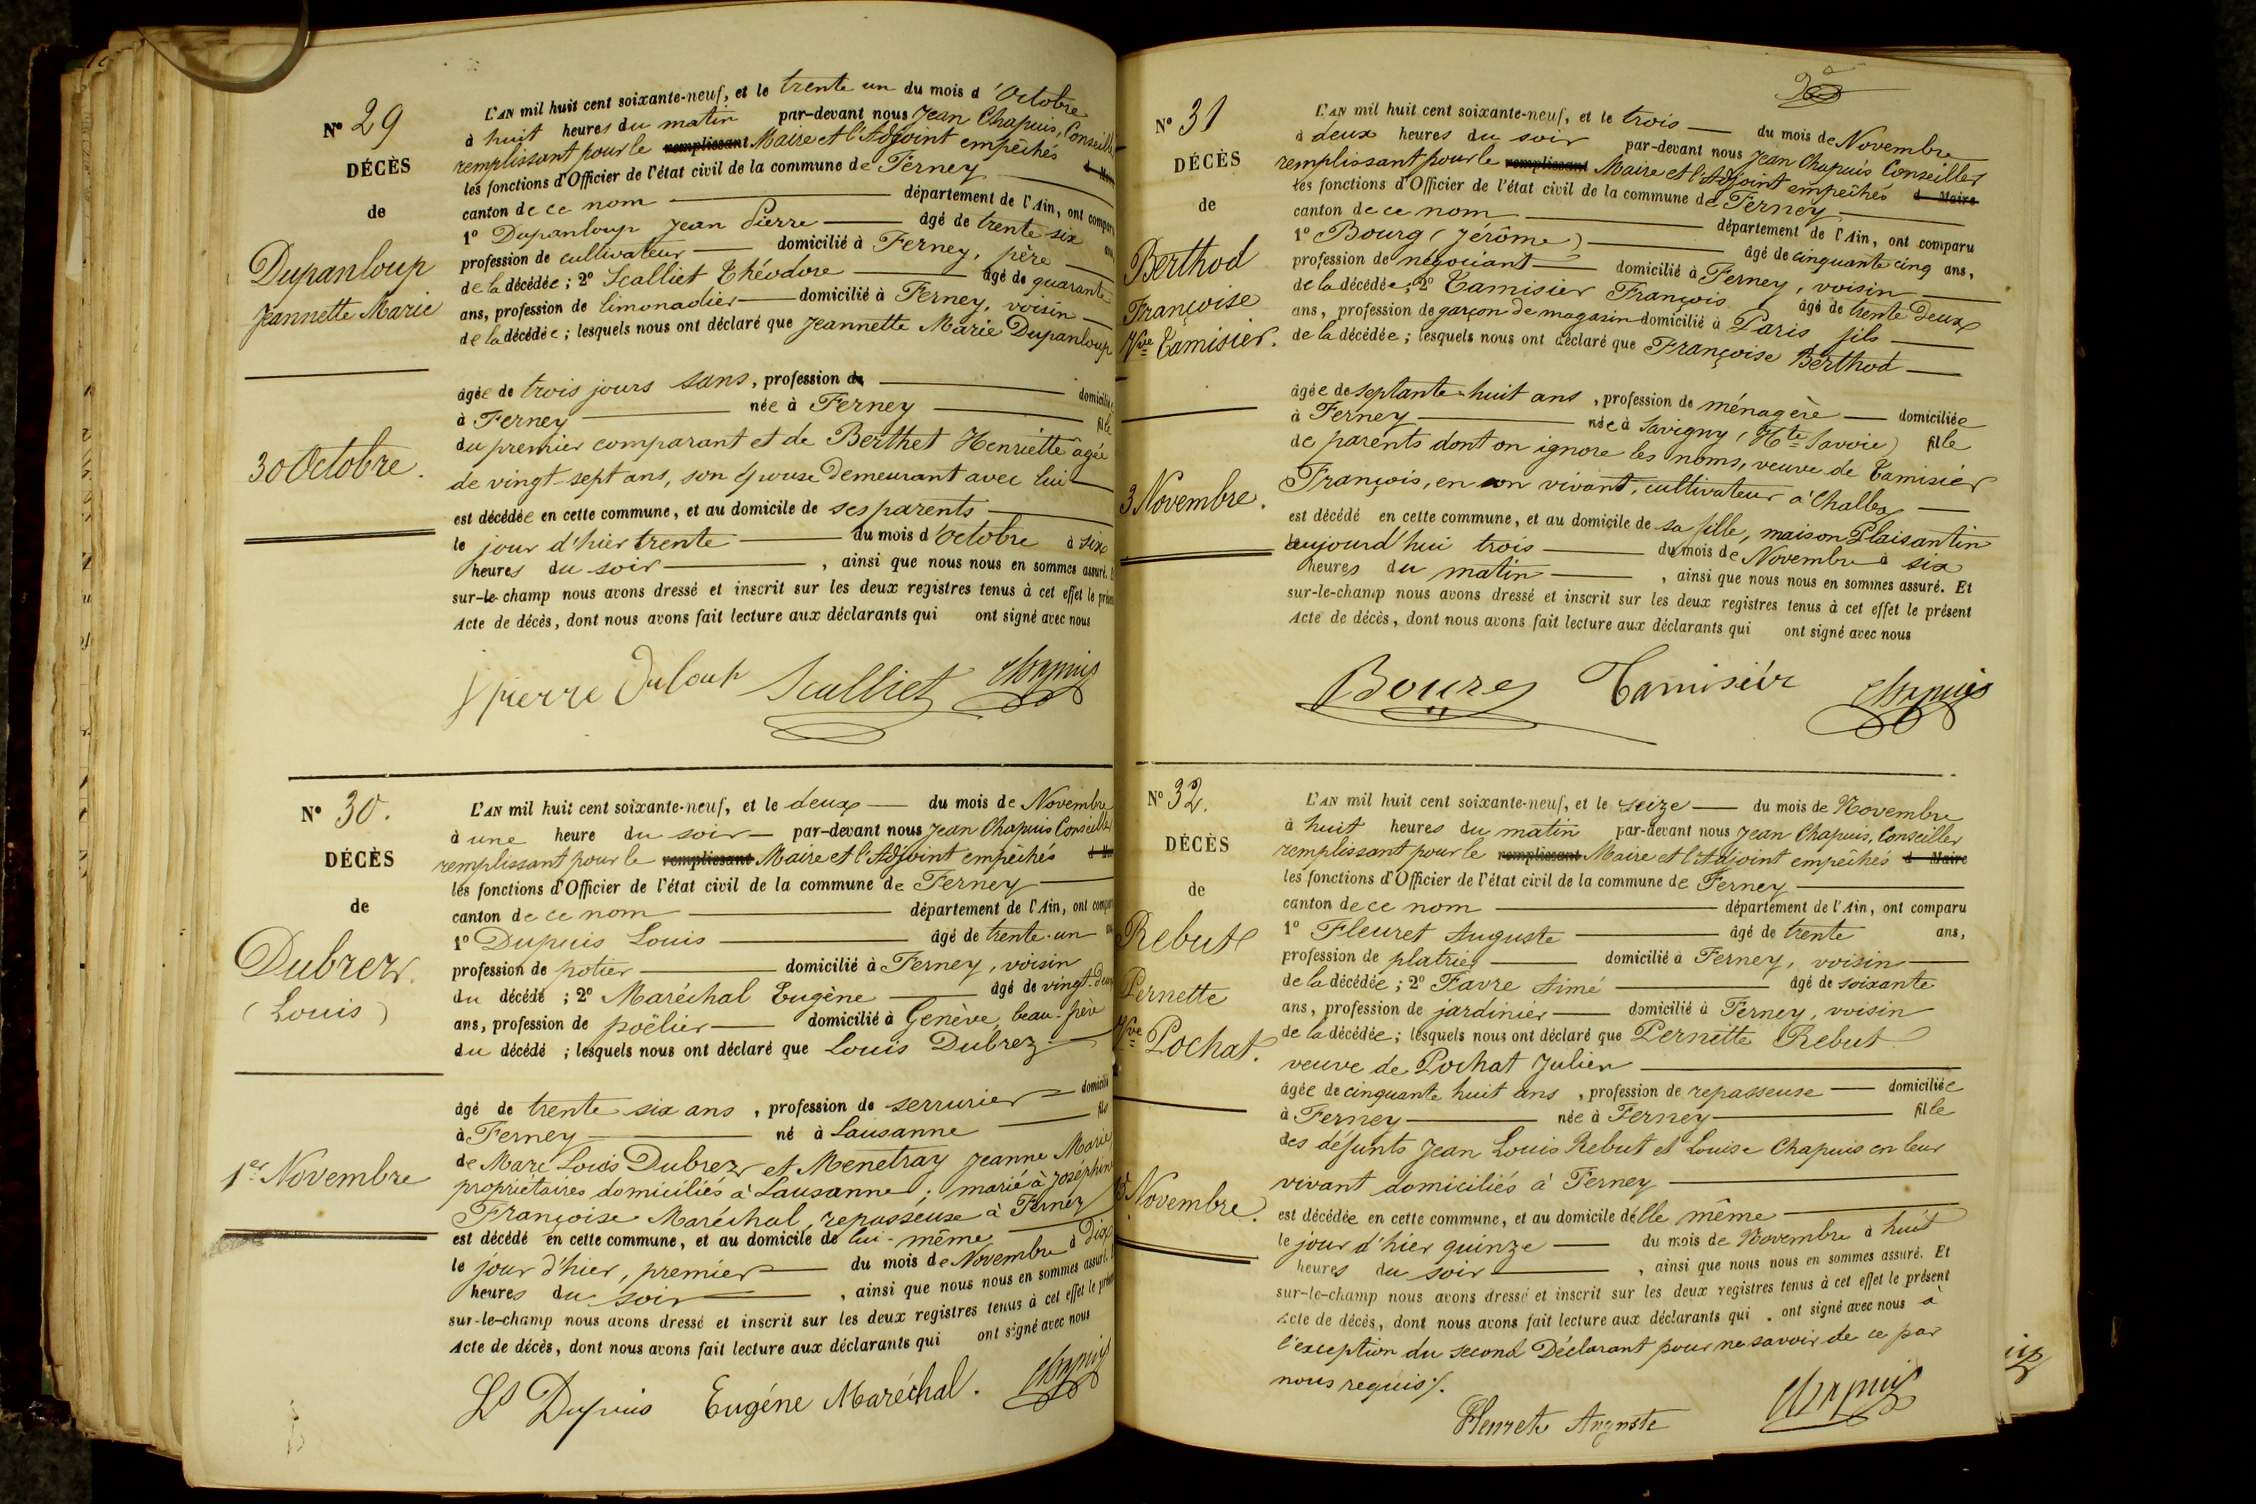 N° 29
DÉCÈS
de
Dupanloup
Jeannette Marie
30 Octobre.
L'AN mil huit cent soixante-neuf, et le trente un du mois d'Octobre
à huit heures du matin par-devant nous Jean Chapuis, Conseill
remplissant pour le remplissant Maire et l'Adjoint empêchés d Mai
les fonctions d'Officier de l'état civil de la commune de Ferney
canton de ce nom département de l'Ain, ont compar
1° Dupanloup Jean Pierre âgé de trente six ans
profession de cultivateur domicilié à Ferney, père
de la décédée ; 2° Scalliet Théodore âgé de quarante
ans, profession de limonadier domicilié à Ferney, voisin
de la décédée ; lesquels nous ont déclaré que Jeannette Marie Dupanloup
âgée de trois jours sans, profession de domiciliée
à Ferney née à Ferney fille
du premier comparant et de Berthet Henriette âgée
de vingt-sept ans, son épouse demeurant avec lui
est décédée en cette commune, et au domicile de ses parents
le jour d'hier trente du mois d'Octobre à six
heures du soir , ainsi que nous nous en sommes assuré. E
sur-le-champ nous avons dressé et inscrit sur les deux registres tenus à cet effet le prése
Acte de décès, dont nous avons fait lecture aux déclarants qui ont signé avec nous
J pierre Duloup Scalliet Chapuis
N° 30.
DÉCÈS
de
Dubrez
(Louis)
1er Novembre
L'AN mil huit cent soixante-neuf, et le deux du mois de Novembre
à une heure du soir par-devant nous Jean Chapuis Conseiller
remplissant pour le remplissant Maire et l'Adjoint empêchés d Mai
les fonctions d'Officier de l'état civil de la commune de Ferney
canton de ce nom département de l'Ain, ont compar
1° Dupuis Louis âgé de trente-un an
profession de potier domicilié à Ferney, voisin
du décédé ; 2° Maréchal Eugène âgé de vingt-deux
ans, profession de poëlier domicilié à Genève, beau-frère
du décédé ; lesquels nous ont déclaré que Louis Dubrez
âgé de trente six ans , profession de serrurier domicilié
à Ferney né à Lausanne fils
de Marc Louis Dubrez et Menetray Jeanne Marie
propriétaires domiciliés à Lausanne ; marié à Joséphine
Françoise Maréchal, repasseuse à Ferney
est décédé en cette commune, et au domicile de lui-même
le jour d'hier, premier du mois de Novembre à dix
heures du soir , ainsi que nous nous en sommes assuré. E
sur-le-champ nous avons dressé et inscrit sur les deux registres tenus à cet effet le prése
Acte de décès, dont nous avons fait lecture aux déclarants qui ont signé avec nous
Ls Dupuis Eugéne Maréchal. Chapuis
N° 31
DÉCÈS
de
Berthod
Françoise
Vve Tamisier.
3 Novembre.
L'AN mil huit cent soixante-neuf, et le trois du mois de Novembre
à deux heures du soir par-devant nous Jean Chapuis Conseiller
remplissant pour le remplissant Maire et l'Adjoint empêchés d Maire
les fonctions d'Officier de l'état civil de la commune de Ferney
canton de ce nom département de l'Ain, ont comparu
1° Bourg (Jérôme) âgé de cinquante cinq ans,
profession de négociant domicilié à Ferney, voisin
de la décédée ; 2° Tamisier François âgé de trente deux
ans, profession de garçon de magasin domicilié à Paris fils
de la décédée ; lesquels nous ont déclaré que Françoise Berthod
âgée de septante-huit ans , profession de ménagère domiciliée
à Ferney née à Savigny (Hte Savoie) fille
de parents dont on ignore les noms, veuve de Tamisier
François, en son vivant, cultivateur à Challex
est décédé en cette commune, et au domicile de sa fille, maison Plaisantin
aujourd'hui trois du mois de Novembre à six
heures du matin , ainsi que nous nous en sommes assuré. Et
sur-le-champ nous avons dressé et inscrit sur les deux registres tenus à cet effet le présent
Acte de décès, dont nous avons fait lecture aux déclarants qui ont signé avec nous
Bourg Tamisiér Chapuis
N° 32.
DÉCÈS
de
Rebut
Pernette
Vve Pochat.
15 Novembre.
L'AN mil huit cent soixante-neuf, et le seize du mois de Novembre
à huit heures du matin par-devant nous Jean Chapuis, Conseiller
remplissant pour le remplissant Maire et l'Adjoint empêchés d Maire
les fonctions d'Officier de l'état civil de la commune de Ferney
canton de ce nom département de l'Ain, ont comparu
1° Fleuret Auguste âgé de trente ans,
profession de platrier domicilié à Ferney, voisin
de la décédée ; 2° Favre Aimé âgé de soixante
ans, profession de jardinier domicilié à Ferney, voisin
de la décédée ; lesquels nous ont déclaré que Pernette Rebut
veuve de Pochat Julien
âgée de cinquante huit ans , profession de repasseuse domiciliée
à Ferney née à Ferney fille
des défunts Jean Louis Rebut et Louise Chapuis en leur
vivant domiciliés à Ferney
est décédée en cette commune, et au domicile délle même
le jour d'hier quinze du mois de Novembre à huit
heures du soir , ainsi que nous nous en sommes assuré. Et
sur-le-champ nous avons dressé et inscrit sur les deux registres tenus à cet effet le présent
Acte de décès, dont nous avons fait lecture aux déclarants qui . ont signé avec nous à
l'exception du second Déclarant pour ne savoir de ce par
nous requis ./.
Fleuret Auguste Chapuis